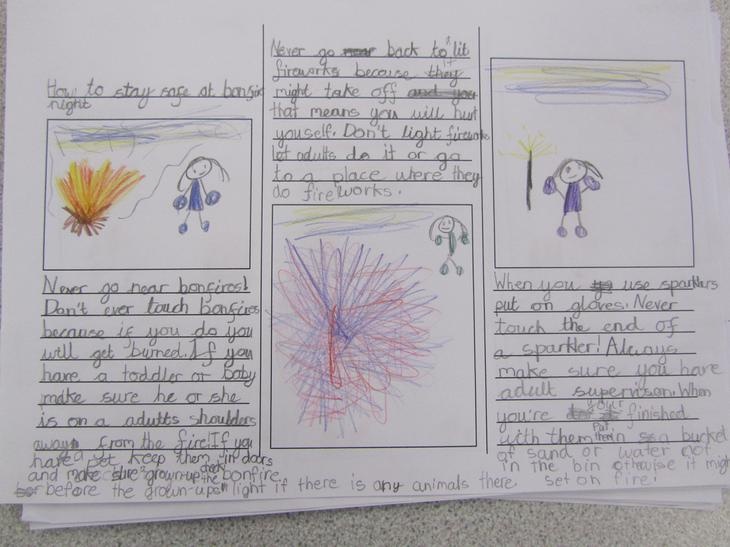 How to stay safe at bonfire
night
Never go near bonfires!
Don't ever touch bonfires
because if you do you
will get burned. If you
have a toddler or baby
make sure he or she
is on a adults shoulders
away from the fire! If you
have pet keep them in doors
and make sure grown-up check the bonfire
before the grown-ups light if there is any animals there.
Never go near back to lit
fireworks because it
might take off and you
that means you will hurt
youself. Don't light fireworks
let adults do it or go
to a place were they
do fireworks.
When you use sparklers
put on gloves. Never
touch the end of
a sparkler! Always
make sure you have
adult supervison. When
you're finished
with them Put them in a bucket
of sand or water not
in the bin otherwise it might
set on fire!